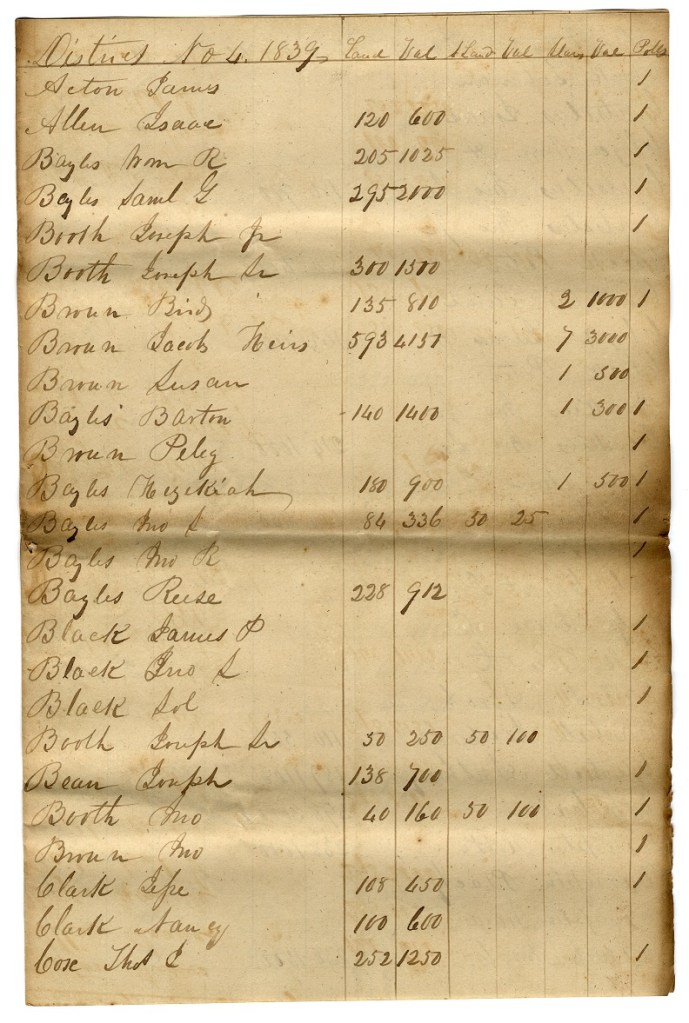 District No 4. 1839 Land Val S Land Val Slavs Val Polls
Acton James 1
Allen Isaac 120 600 1
Bayles Wm R 205 1025 1
Bayles Saml G 295 2000 1
Booth Joseph Jr 1
Booth Joseph Sr 300 1500
Brown Bird 135 810 2 1000 1
Brown Jacob Heirs 593 4150 7 3000
Brown Susan 1 500
Bayles Barton 140 1400 1 300 1
Brown Peleg 1
Bayles Hezekiah 180 900 1 500 1
Bayles Jno S 84 336 50 25 1
Bayles Jno R 1
Bayles Reese 228 912
Black James P 1
Black Jno S 1
Black Sol 1
Booth Joseph Sr 50 250 50 100
Bean Joseph 138 700 1
Booth Jno 40 160 50 100 1
Brown Jno 1
Clark Jesse 108 450 1
Clark Nancy 100 600
Cox Thos 252 1250 1